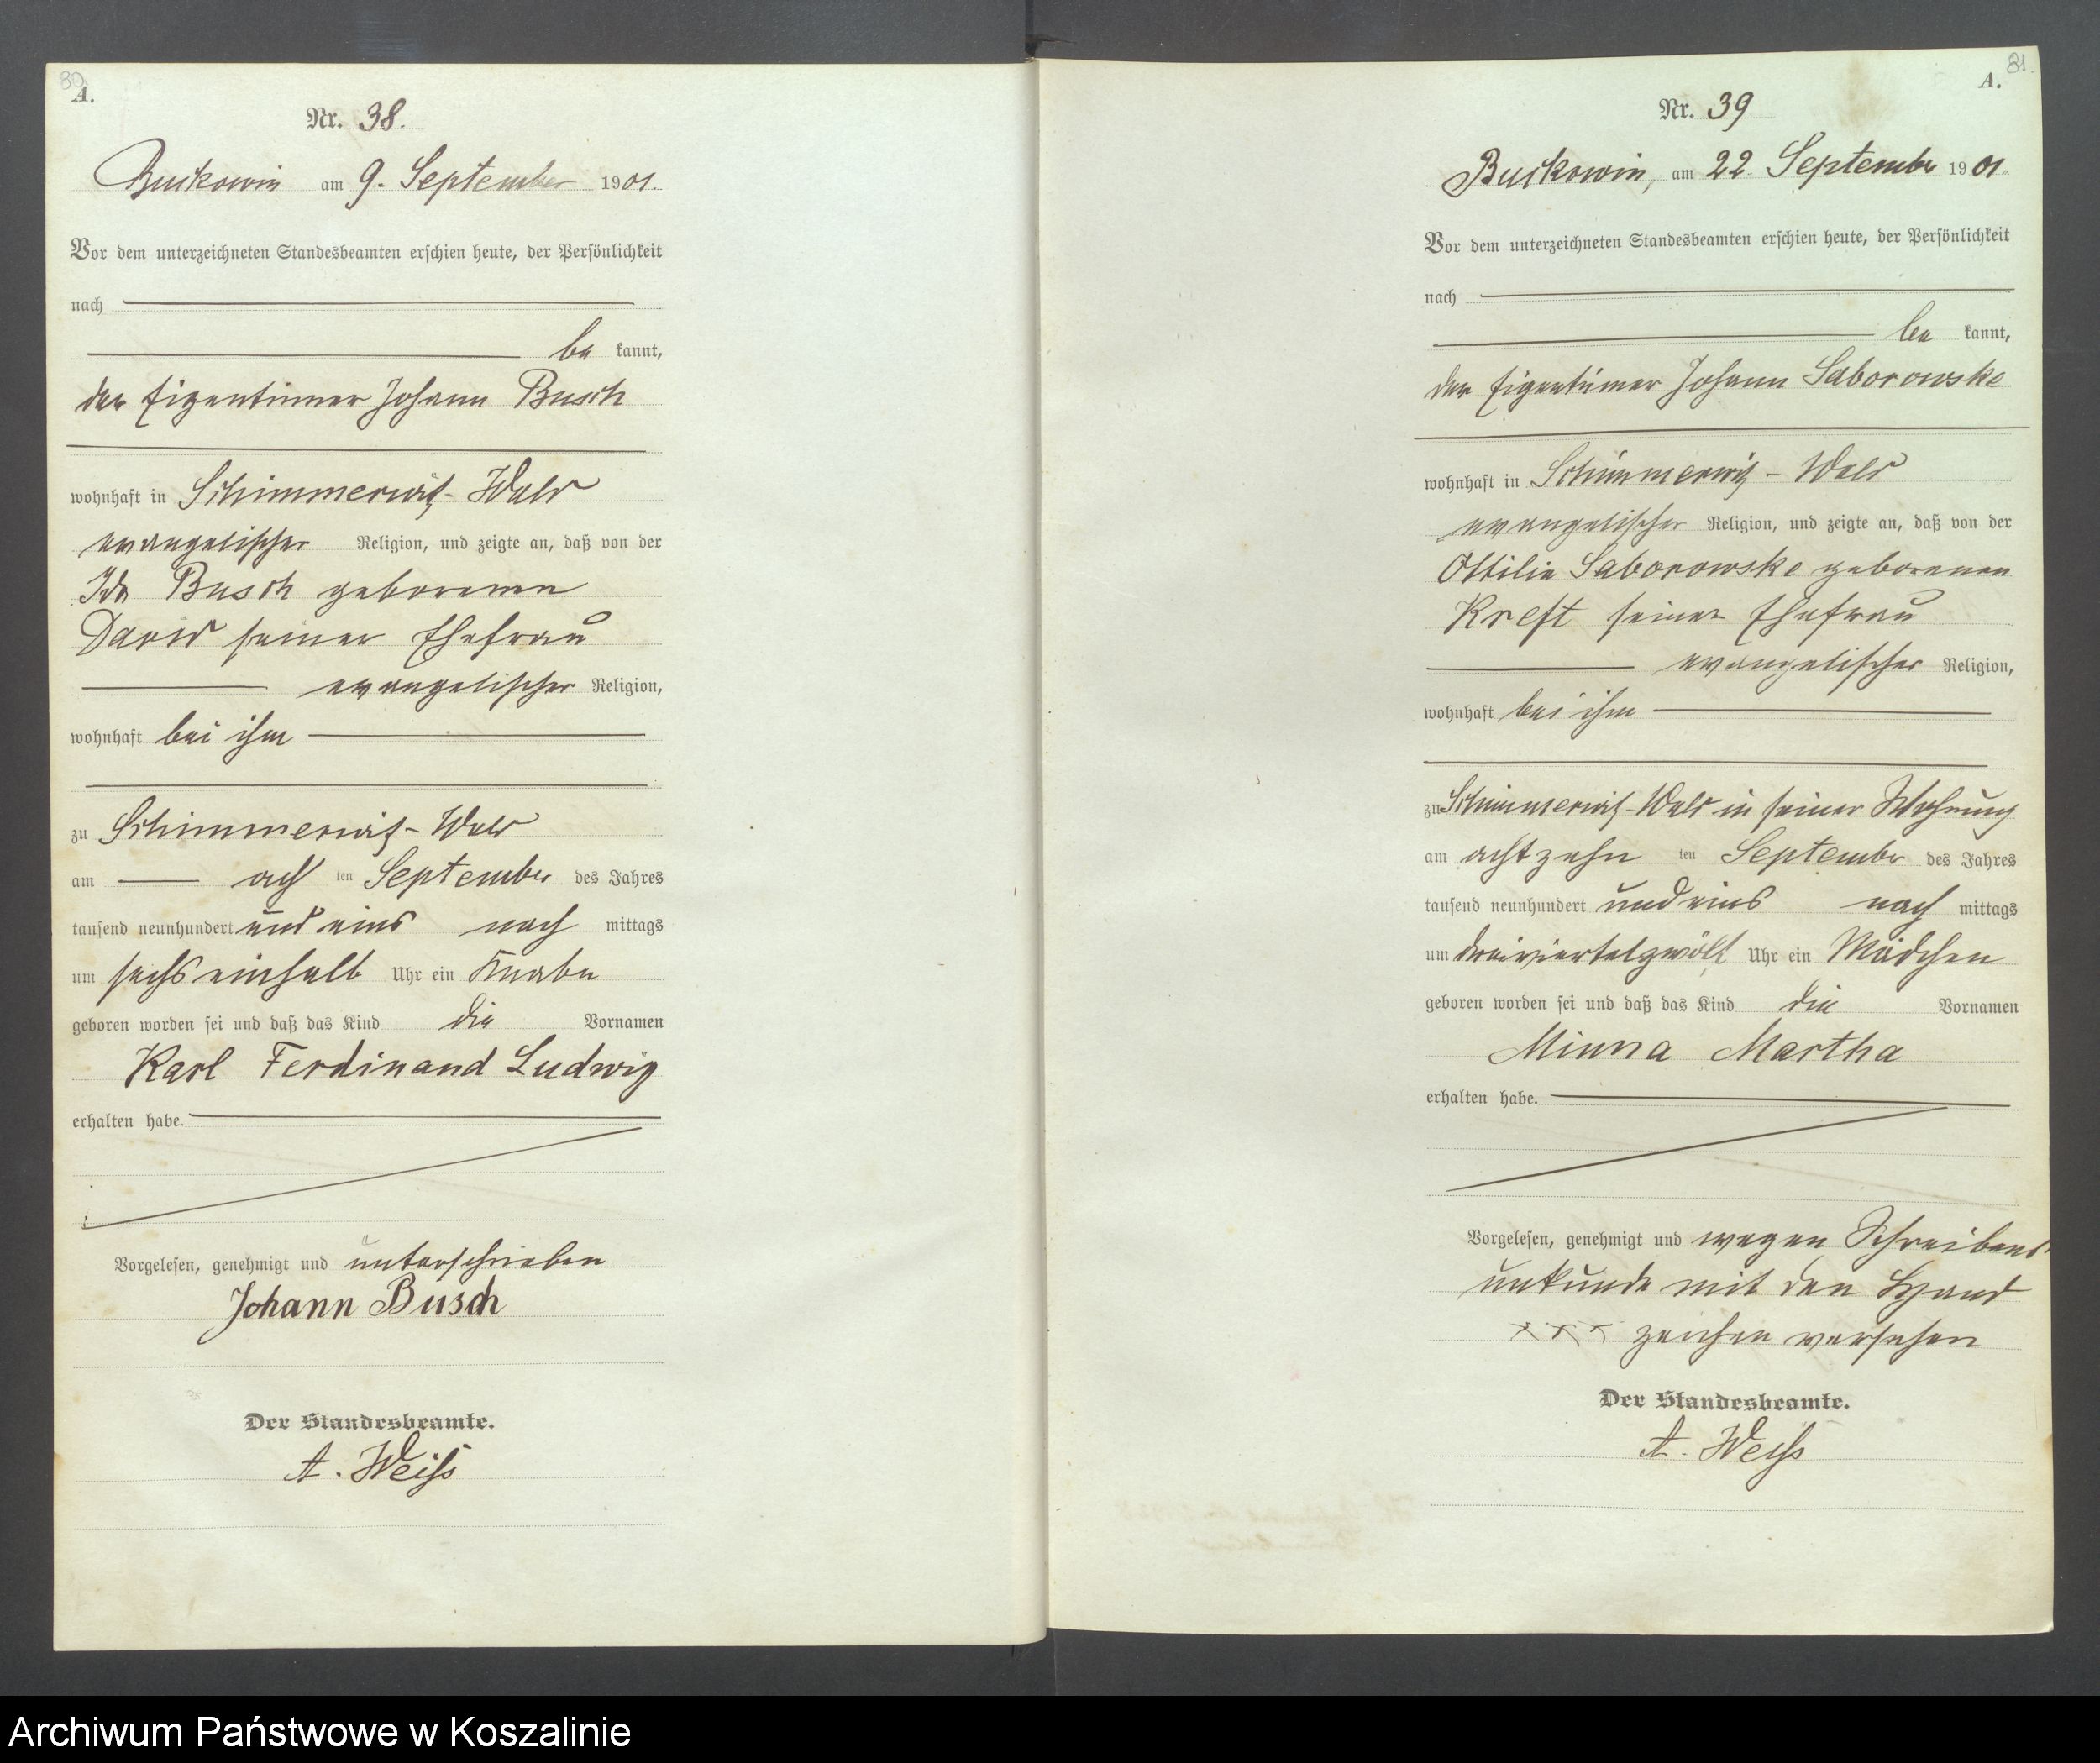 80
A.
Nr. 38.
Buckowin am 9. September 1901.
Vor dem unterzeichneten Standesbeamten erschien heute, der Persönlichkeit
nach
be kannt,
der Eigentümer Johann Busch
wohnhaft in Schimmerwitz-Wald
evangelischer Religion, und zeigte an, daß von der
Ida Busch geborenen
David seiner Ehefrau
evangelischer Religion,
wohnhaft bei ihm
zu Schimmerwitz-Wald
am acht ten September des Jahres
tausend neunhundert und eins nach mittags
um sechs einhalb Uhr ein Knabe
geboren worden sei und daß das Kind die Vornamen
Karl Ferdinand Ludwig
erhalten habe.
Vorgelesen, genehmigt und unterschrieben
Johann Busch
Der Standesbeamte.
A. Weiß
81
A.
Nr. 39
Buckowin, am 22. September 1901.
Vor dem unterzeichneten Standesbeamten erschien heute, der Persönlichkeit
nach
be kannt,
der Eigentümer Johann Saborowske
wohnhaft in Schimmerwitz-Wald
evangelischer Religion, und zeigte an, daß von der
Ottilie Saborowske geborenen
Kreft seiner Ehefrau
evangelischer Religion,
wohnhaft bei ihm
zu Schimmerwitz-Wald in seiner Wohnung
am achtzehn ten September des Jahres
tausend neunhundert und eins nach mittags
um dreiviertelzwölf Uhr ein Mädchen
geboren worden sei und daß das Kind die Vornamen
Minna Martha
erhalten habe.
Vorgelesen, genehmigt und wegen Schreibens
unkunde mit den Hand
xxx zeichen versehen
Der Standesbeamte.
A. Weiß
Archiwum Państwowe w Koszalinie